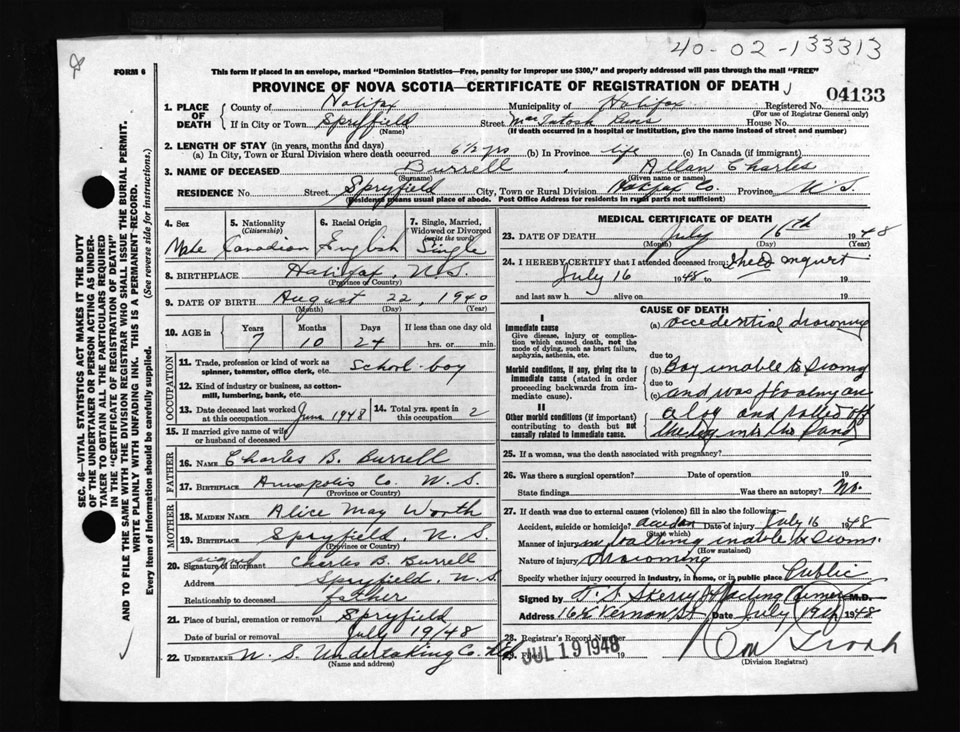 40-02-133313
FORM 6
This form if placed in an envelope, marked "Dominion Statistics—Free, penalty for improper use $300," and properly addressed will pass through the mail "FREE"
PROVINCE OF NOVA SCOTIA—CERTIFICATE OF REGISTRATION OF DEATH
04133
1. PLACE OF DEATH County of Halifax Municipality of Halifax Registered No.
(For use of Registrar General only)
If in City or Town Spryfield Street MacIntosh House No.
(Name) (If death occurred in a hospital or institution, give the name instead of street and number)
2. LENGTH OF STAY (in years, months and days)
(a) In City, Town or Rural Division where death occurred 6½ yrs (b) In Province life (c) In Canada (if immigrant)
3. NAME OF DECEASED Burrell, Allan Charles
(Surname) (Given name or names)
RESIDENCE No. Street Spryfield City, Town or Rural Division Halifax Co. Province N.S.
(Residence means usual place of abode. Post Office Address for residents in rural parts not sufficient)
4. Sex 5. Nationality (Citizenship) 6. Racial Origin 7. Single, Married, Widowed or Divorced (write the word)
Male Canadian English Single
8. BIRTHPLACE Halifax, N.S.
(Province or Country)
9. DATE OF BIRTH August 22, 1940
(Month) (Day) (Year)
10. AGE in Years Months Days If less than one day old
7 10 24 hrs. or min.
OCCUPATION
11. Trade, profession or kind of work as spinner, teamster, office clerk, etc. School-boy
12. Kind of industry or business, as cotton-mill, lumbering, bank, etc.
13. Date deceased last worked at this occupation June 1948 14. Total yrs. spent in this occupation 2
15. If married give name of wife or husband of deceased
FATHER
16. NAME Charles B. Burrell
17. BIRTHPLACE Annapolis Co. N.S.
(Province or Country)
MOTHER
18. MAIDEN NAME Alice May Worth
19. BIRTHPLACE Spryfield, N.S.
(Province or Country)
20. Signature of informant signed Charles B. Burrell
Address Spryfield, N.S.
Relationship to deceased father
21. Place of burial, cremation or removal Spryfield
Date of burial or removal July 19/48
22. UNDERTAKER N.S. Undertaking Co. Ltd
(Name and address)
MEDICAL CERTIFICATE OF DEATH
23. DATE OF DEATH July 16th 1948
(Month) (Day) (Year)
24. I HEREBY CERTIFY that I attended deceased from
July 16 1948 to 19
and last saw h alive on 19
CAUSE OF DEATH
I
Immediate cause
Give disease, injury or complication which caused death, not the mode of dying, such as heart failure, asphyxia, asthenia, etc.
(a) accidential drowning
due to
Morbid conditions, if any, giving rise to immediate cause (stated in order proceeding backwards from immediate).
(b) Boy unable to Swim
due to
(c) and was on
II
Other morbid conditions (if important) contributing to death but not causally related to immediate cause.
a log and rolled off
the log into the Pond
25. If a woman, was the death associated with pregnancy?
26. Was there a surgical operation? Date of operation 19
State findings Was there an autopsy? No.
27. If death was due to external causes (violence) fill in also the following:—
Accident, suicide or homicide? Date of injury July 16 1948
(State which)
Manner of injury in bathing unable to Swim.
(How sustained)
Nature of injury Drowning
Specify whether injury occurred in industry, in home, or in public place Public
Signed by Skerry M.D.
Address Vernon St Date July 19th 1948
28. Registrar's Record Number
JUL 19 1948 19
(Division Registrar)
SEC. 46—VITAL STATISTICS ACT MAKES IT THE DUTY
OF THE UNDERTAKER OR PERSON ACTING AS UNDER-
TAKER TO OBTAIN ALL THE PARTICULARS REQUIRED
IN THE "CERTIFICATE OF REGISTRATION OF DEATH"
AND TO FILE THE SAME WITH THE DIVISION REGISTRAR WHO SHALL ISSUE THE BURIAL PERMIT.
WRITE PLAINLY WITH UNFADING INK. THIS IS A PERMANENT RECORD.
Every item of information should be carefully supplied. (See reverse side for instructions.)